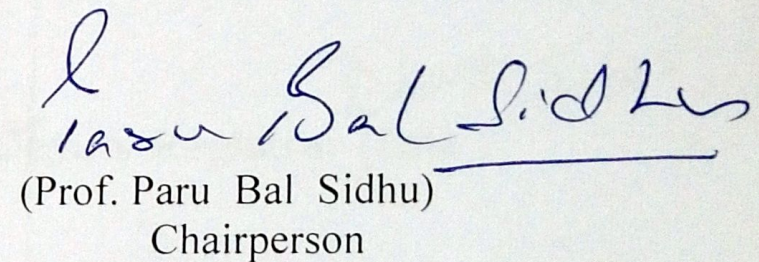 Paru Bal Sidhu
(Prof. Paru Bal Sidhu)
Chairperson